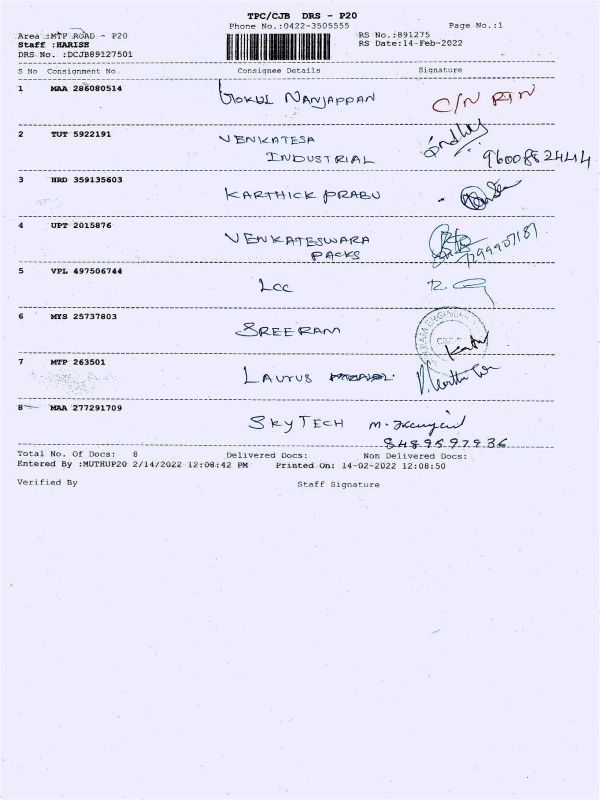 TPC/CJB DRS - P20
Phone No.:0422-3505555 Page No.:1
Area :MTP ROAD - P20 RS No.:891275
Staff :HARISH RS Date:14-Feb-2022
DRS No. :DCJB89127501
S No Consignment No Consignee Details Signature
1 MAA 286080514 GOKUL NANJAPPAN C/N RTN
2 TUT 5922191 VENKATESA
INDUSTRIAL 9600882444
3 HRD 359135603 KARTHICK PRABU
4 UPT 2015876 VENKATESWARA
PACKS 7299907187
5 VPL 497506744 LCC
6 MYS 25737803 SREERAM
7 MTP 263501 LAURUS
8 MAA 277291709 SKYTECH
8489597936
Total No. Of Docs: 8 Delivered Docs: Non Delivered Docs:
Entered By :MUTHUP20 2/14/2022 12:08:42 PM Printed On: 14-02-2022 12:08:50
Verified By Staff Signature